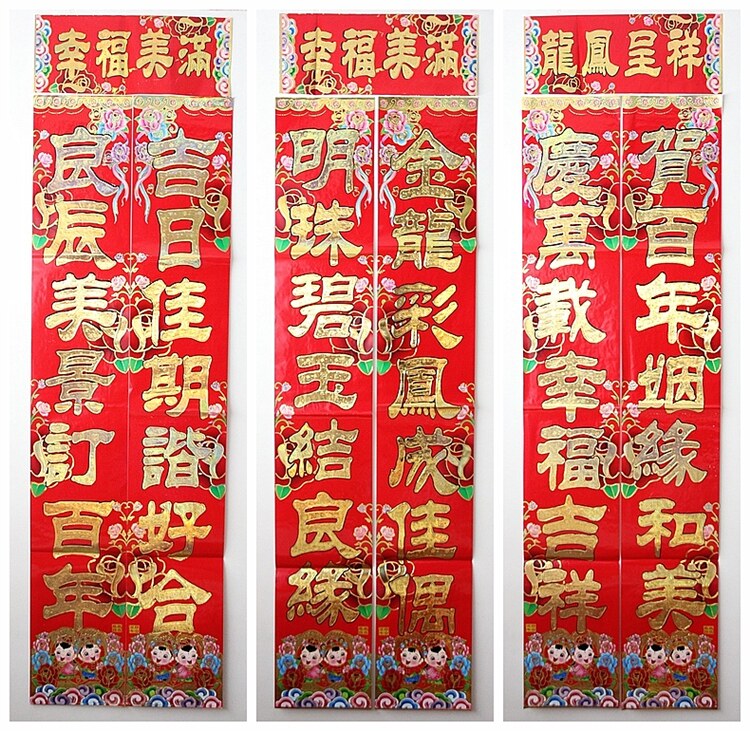 幸福美滿
吉日佳期諧好合
良辰美景訂百年
幸福美滿
金龍彩鳳成佳偶
明珠碧玉結良緣
龍鳳呈祥
賀百年姻緣和美
慶萬載幸福吉祥